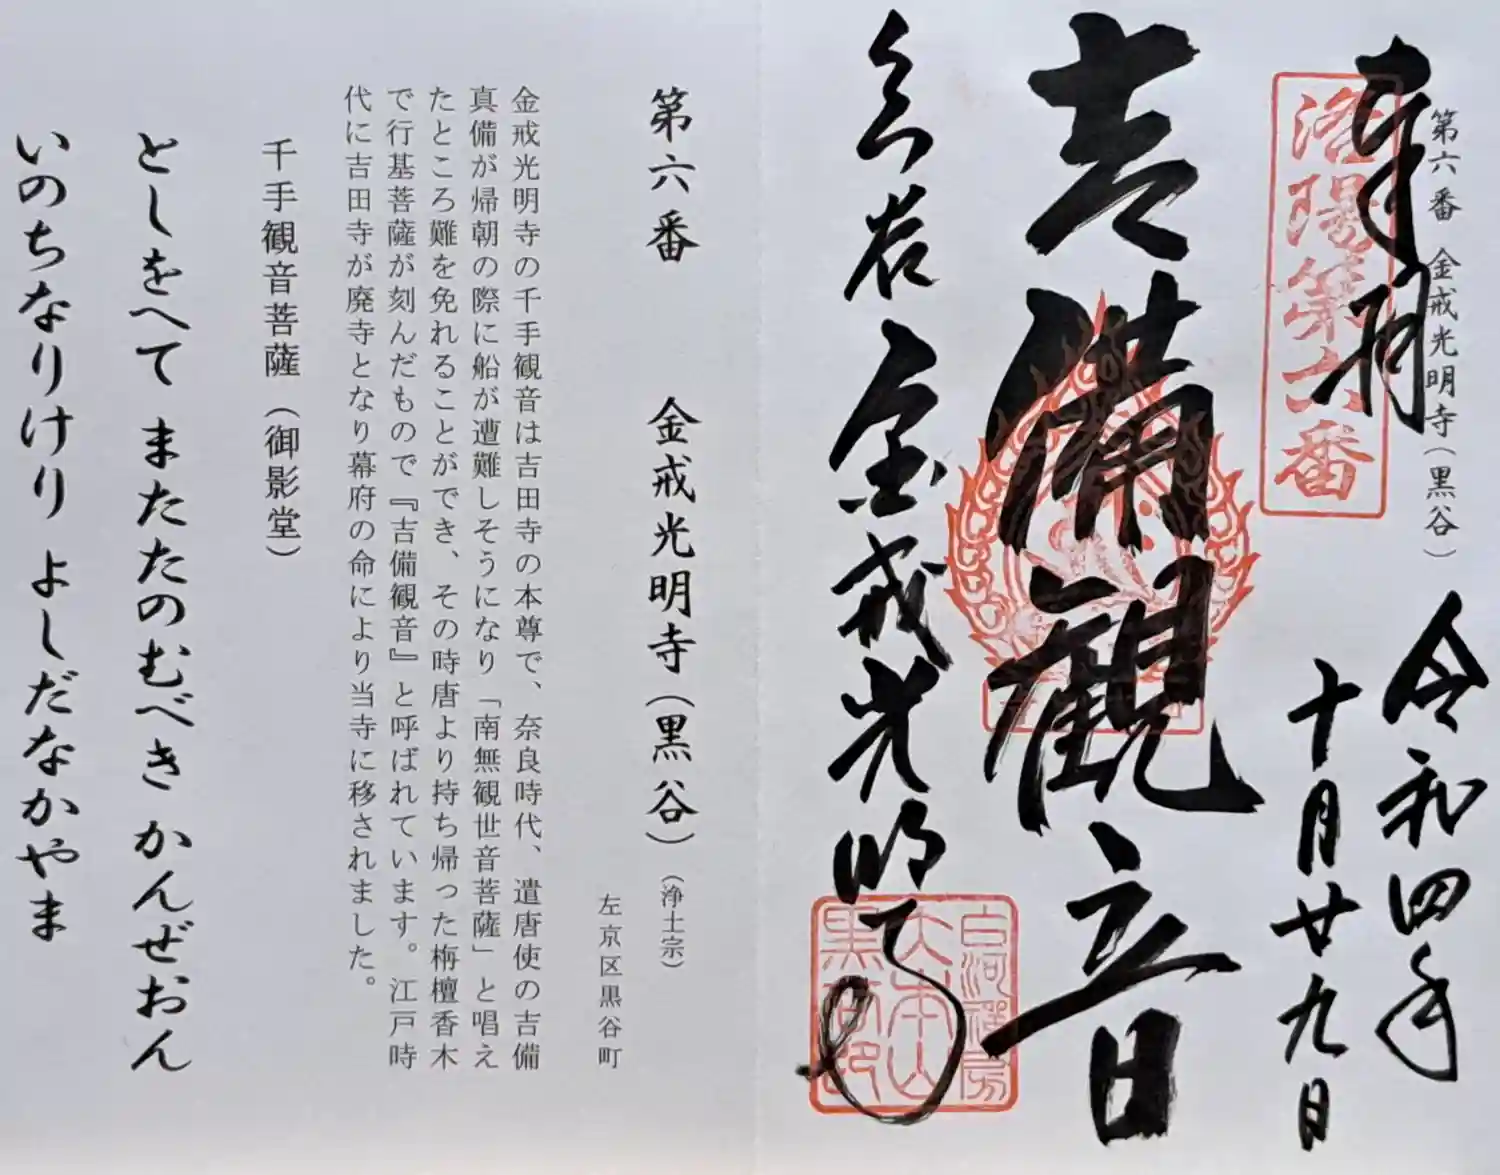 第六番 金戒光明寺(黒谷)
奉拝
洛陽第六番
令和四年
十月廿九日
吉備観音
金戒光明寺
白河禪房
大本山
黒谷印
第六番 金戒光明寺(黒谷)(浄土宗)
左京区黒谷町
金戒光明寺の千手観音は吉田寺の本尊で、奈良時代、遣唐使の吉備
真備が帰朝の際に船が遭難しそうになり「南無観世音菩薩」と唱え
たところ難を免れることができ、その時唐より持ち帰った栴檀香木
で行基菩薩が刻んだもので『吉備観音』と呼ばれています。江戸時
代に吉田寺が廃寺となり幕府の命により当寺に移されました。
千手観音菩薩(御影堂)
としをへて またたのむべき かんぜおん
いのちなりけり よしだなかやま